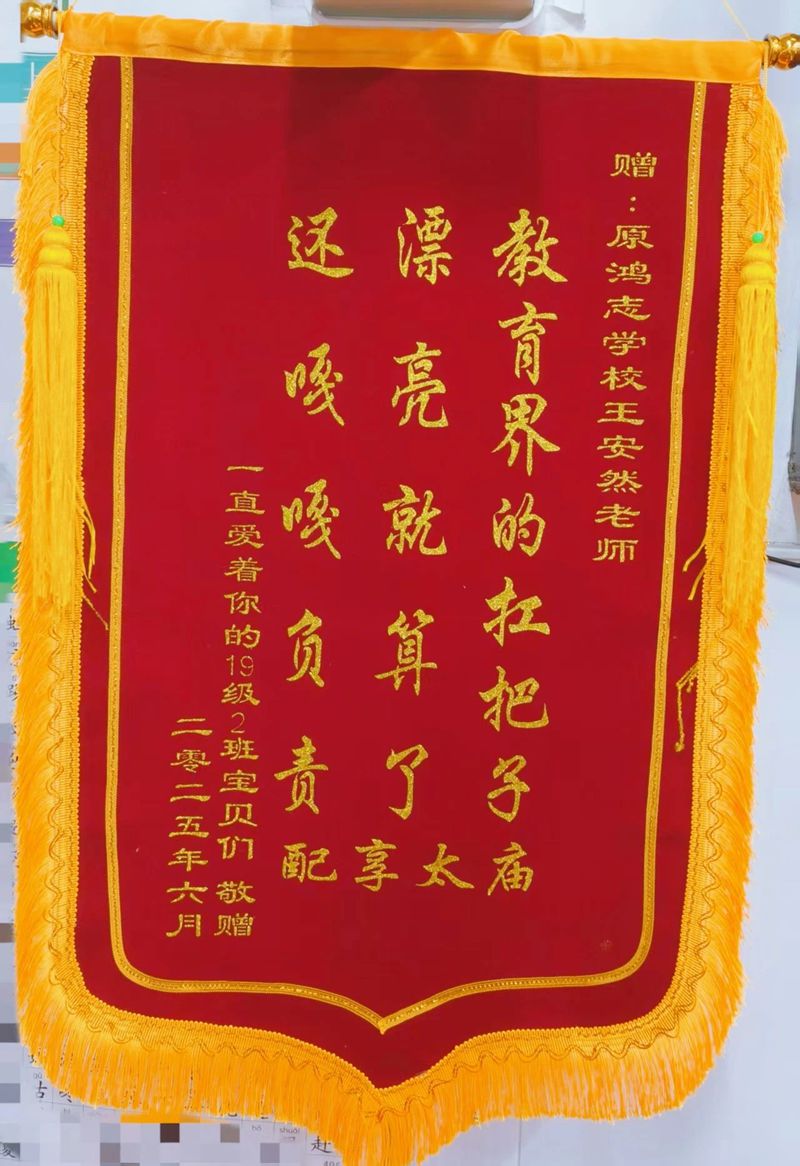 赠：原鸿志学校王安然老师
教育界的扛把子
漂亮就算了
还嘎嘎负责
配享太庙
一直爱着你的19级2班宝贝们 敬赠
二零二五年六月